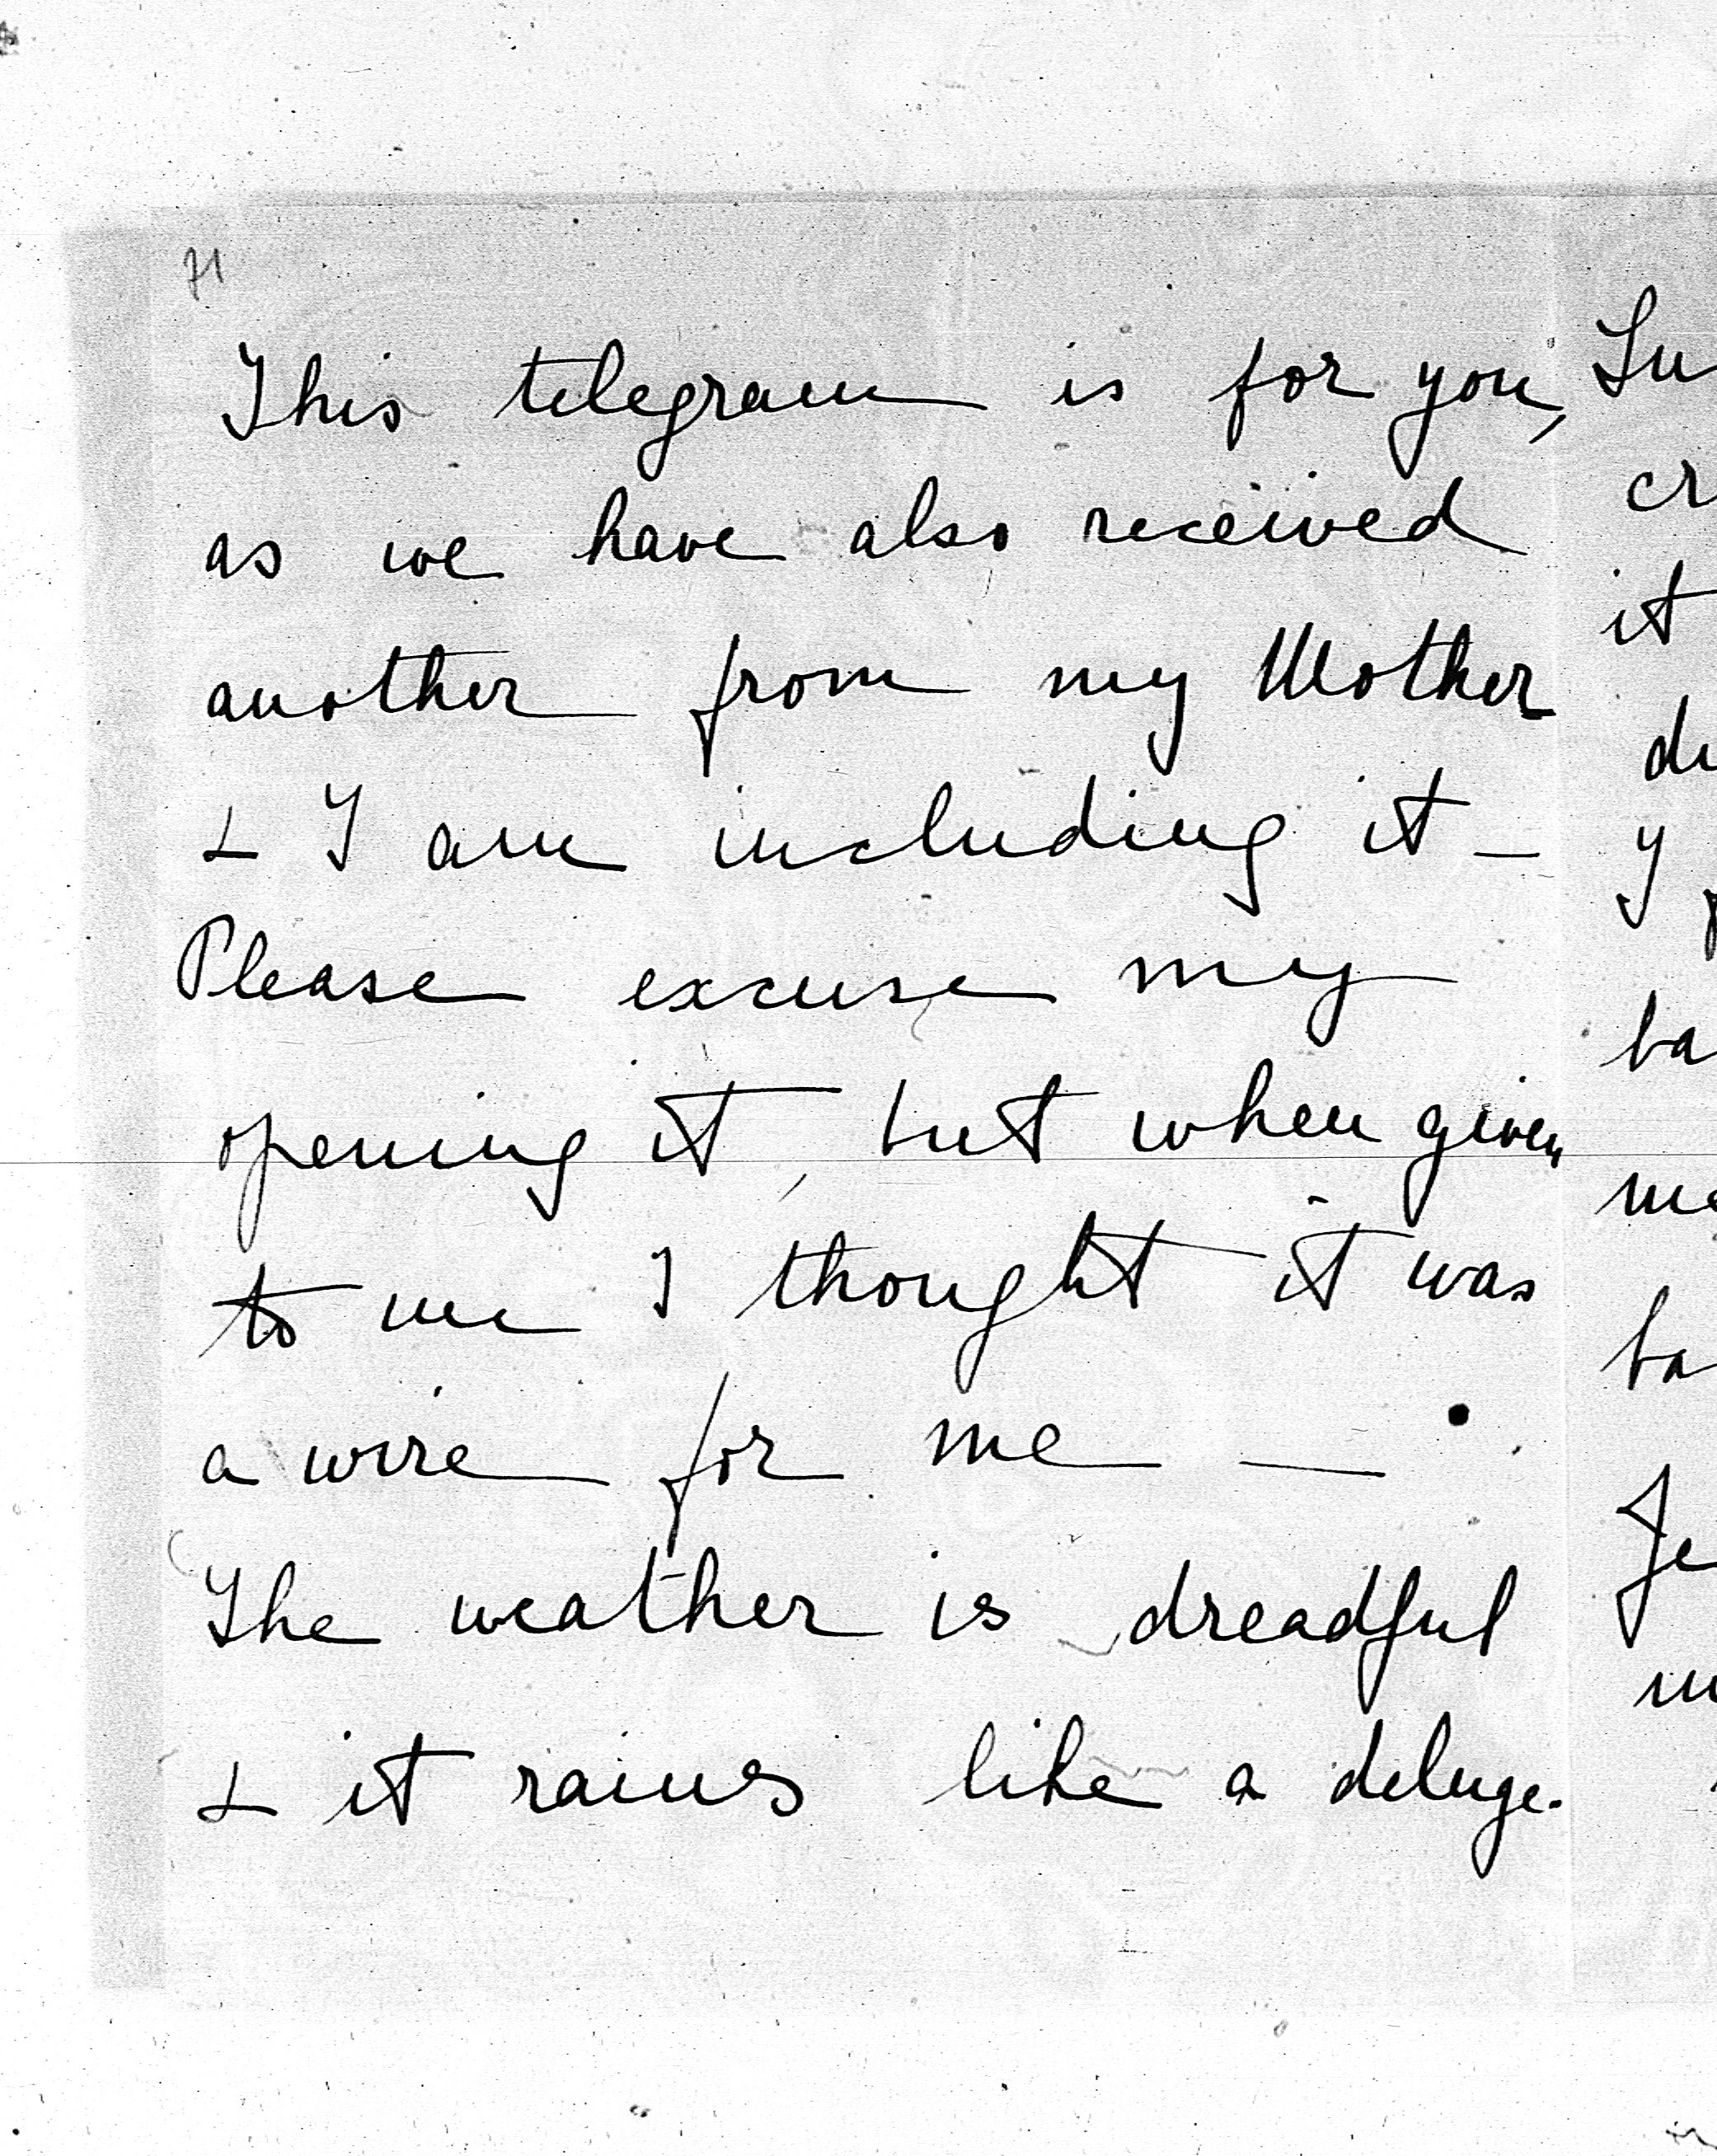 71
This telegram is for you,
as we have also received
another from my Mother
& I am including it –
Please excuse my
opening it, but when given
to me I thought it was
a wire for me —
The weather is dreadful
& it rains like a deluge.
it
me